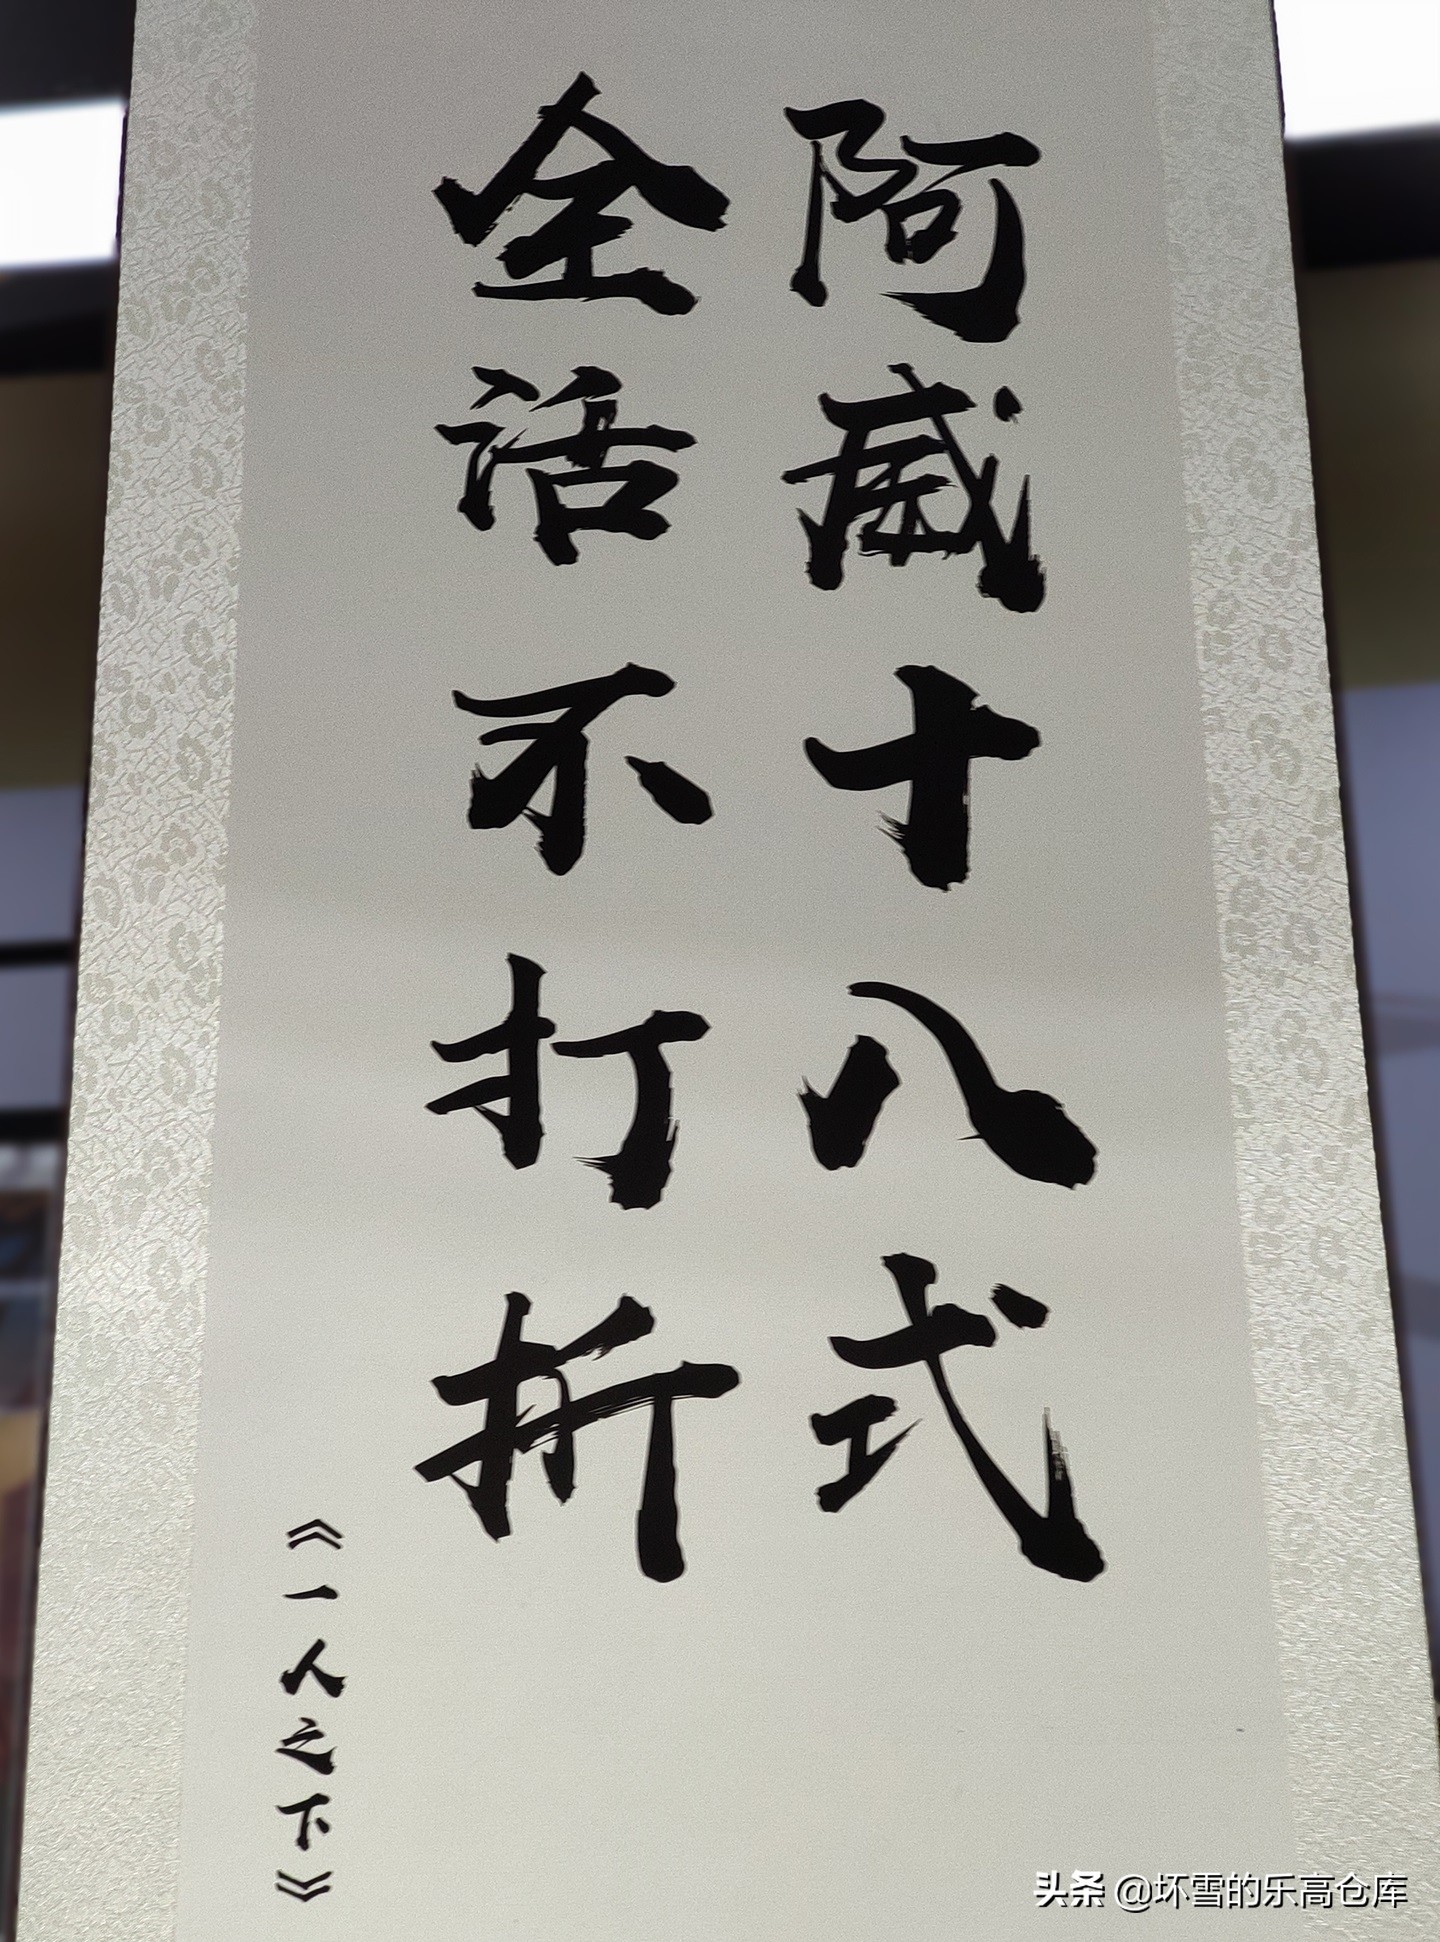 阿威十八式
全活不打折
《一人之下》
头条 @坏雪的乐高仓库